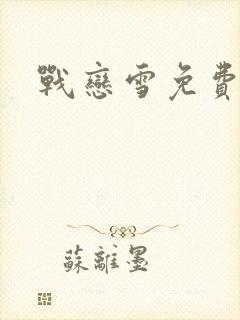 戰戀雪免費
蘇離墨